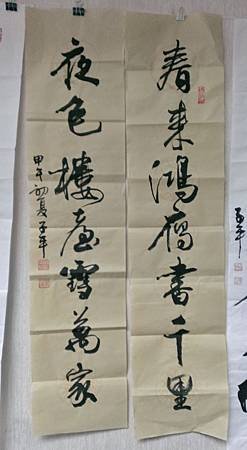 春来鸿雁書千里
夜色樓臺雪萬家
甲午初夏子年